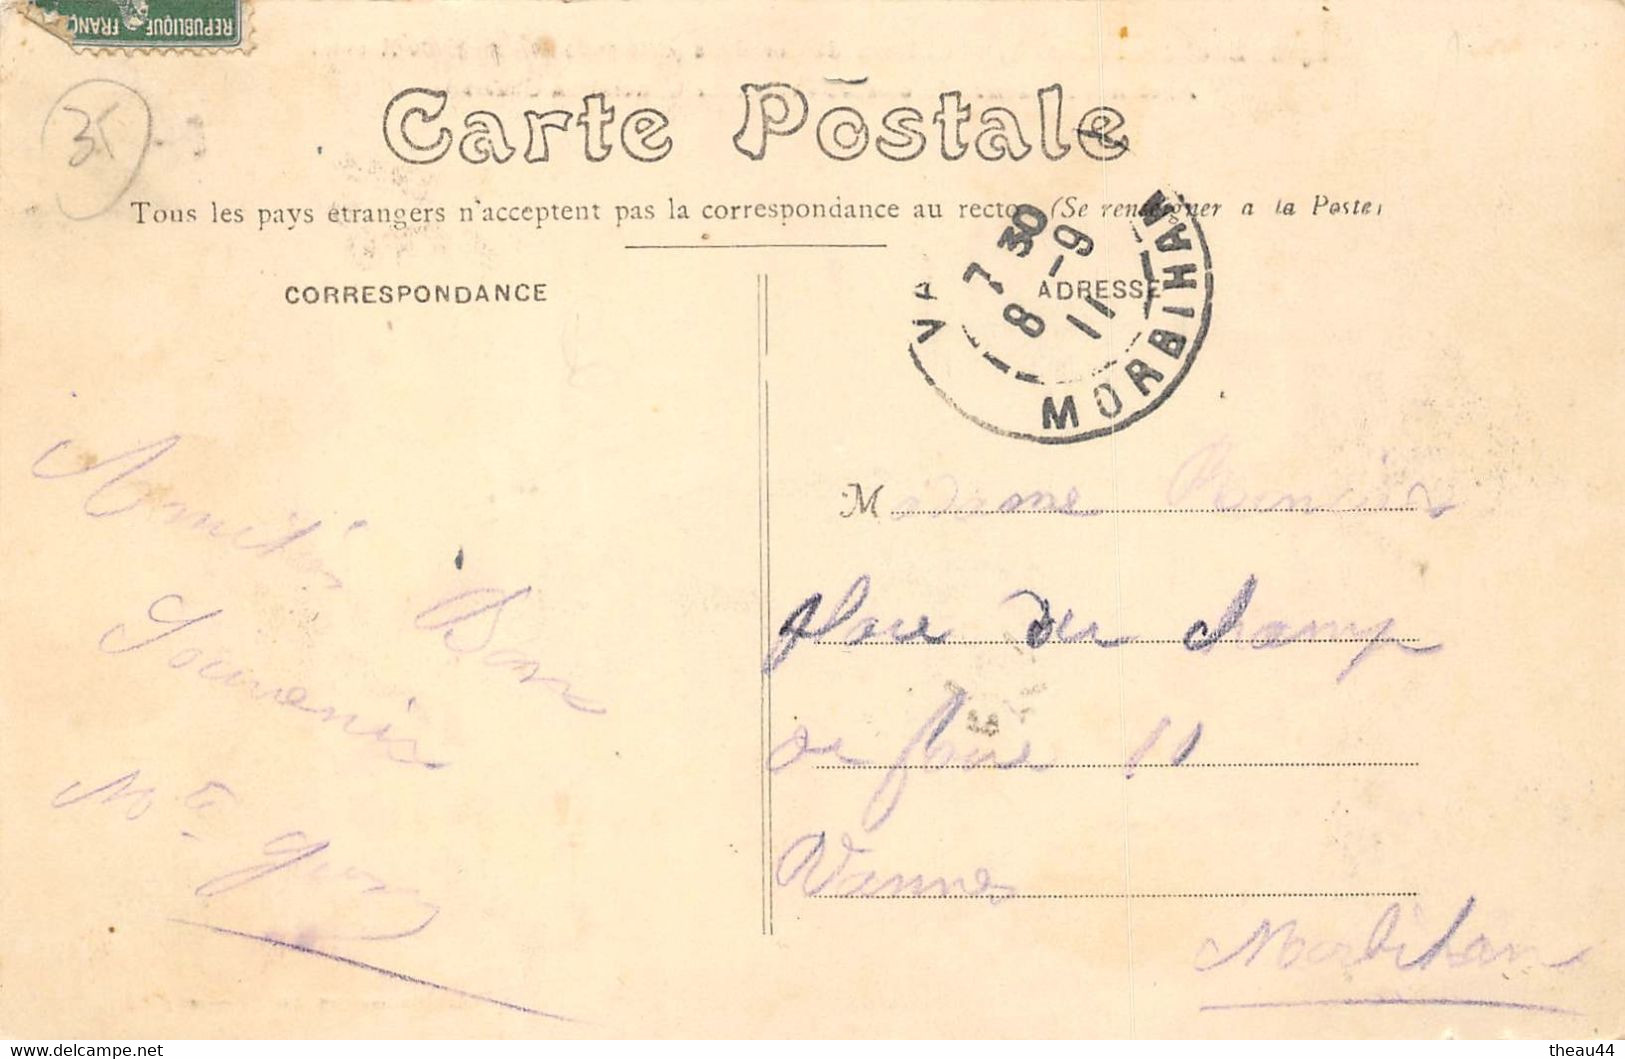 REPUBLIQUE FRANC
35
Carte Postale
Tous les pays étrangers n'acceptent pas la correspondance au recto (Se renseigner à la Poste)
CORRESPONDANCE
ADRESSE
VA
MORBIHAN
7 30
8 -9
11
Amitiés Bon
Souvenir
M
Madame
place du champ
de foire 11
Vannes
Morbihan
theau44